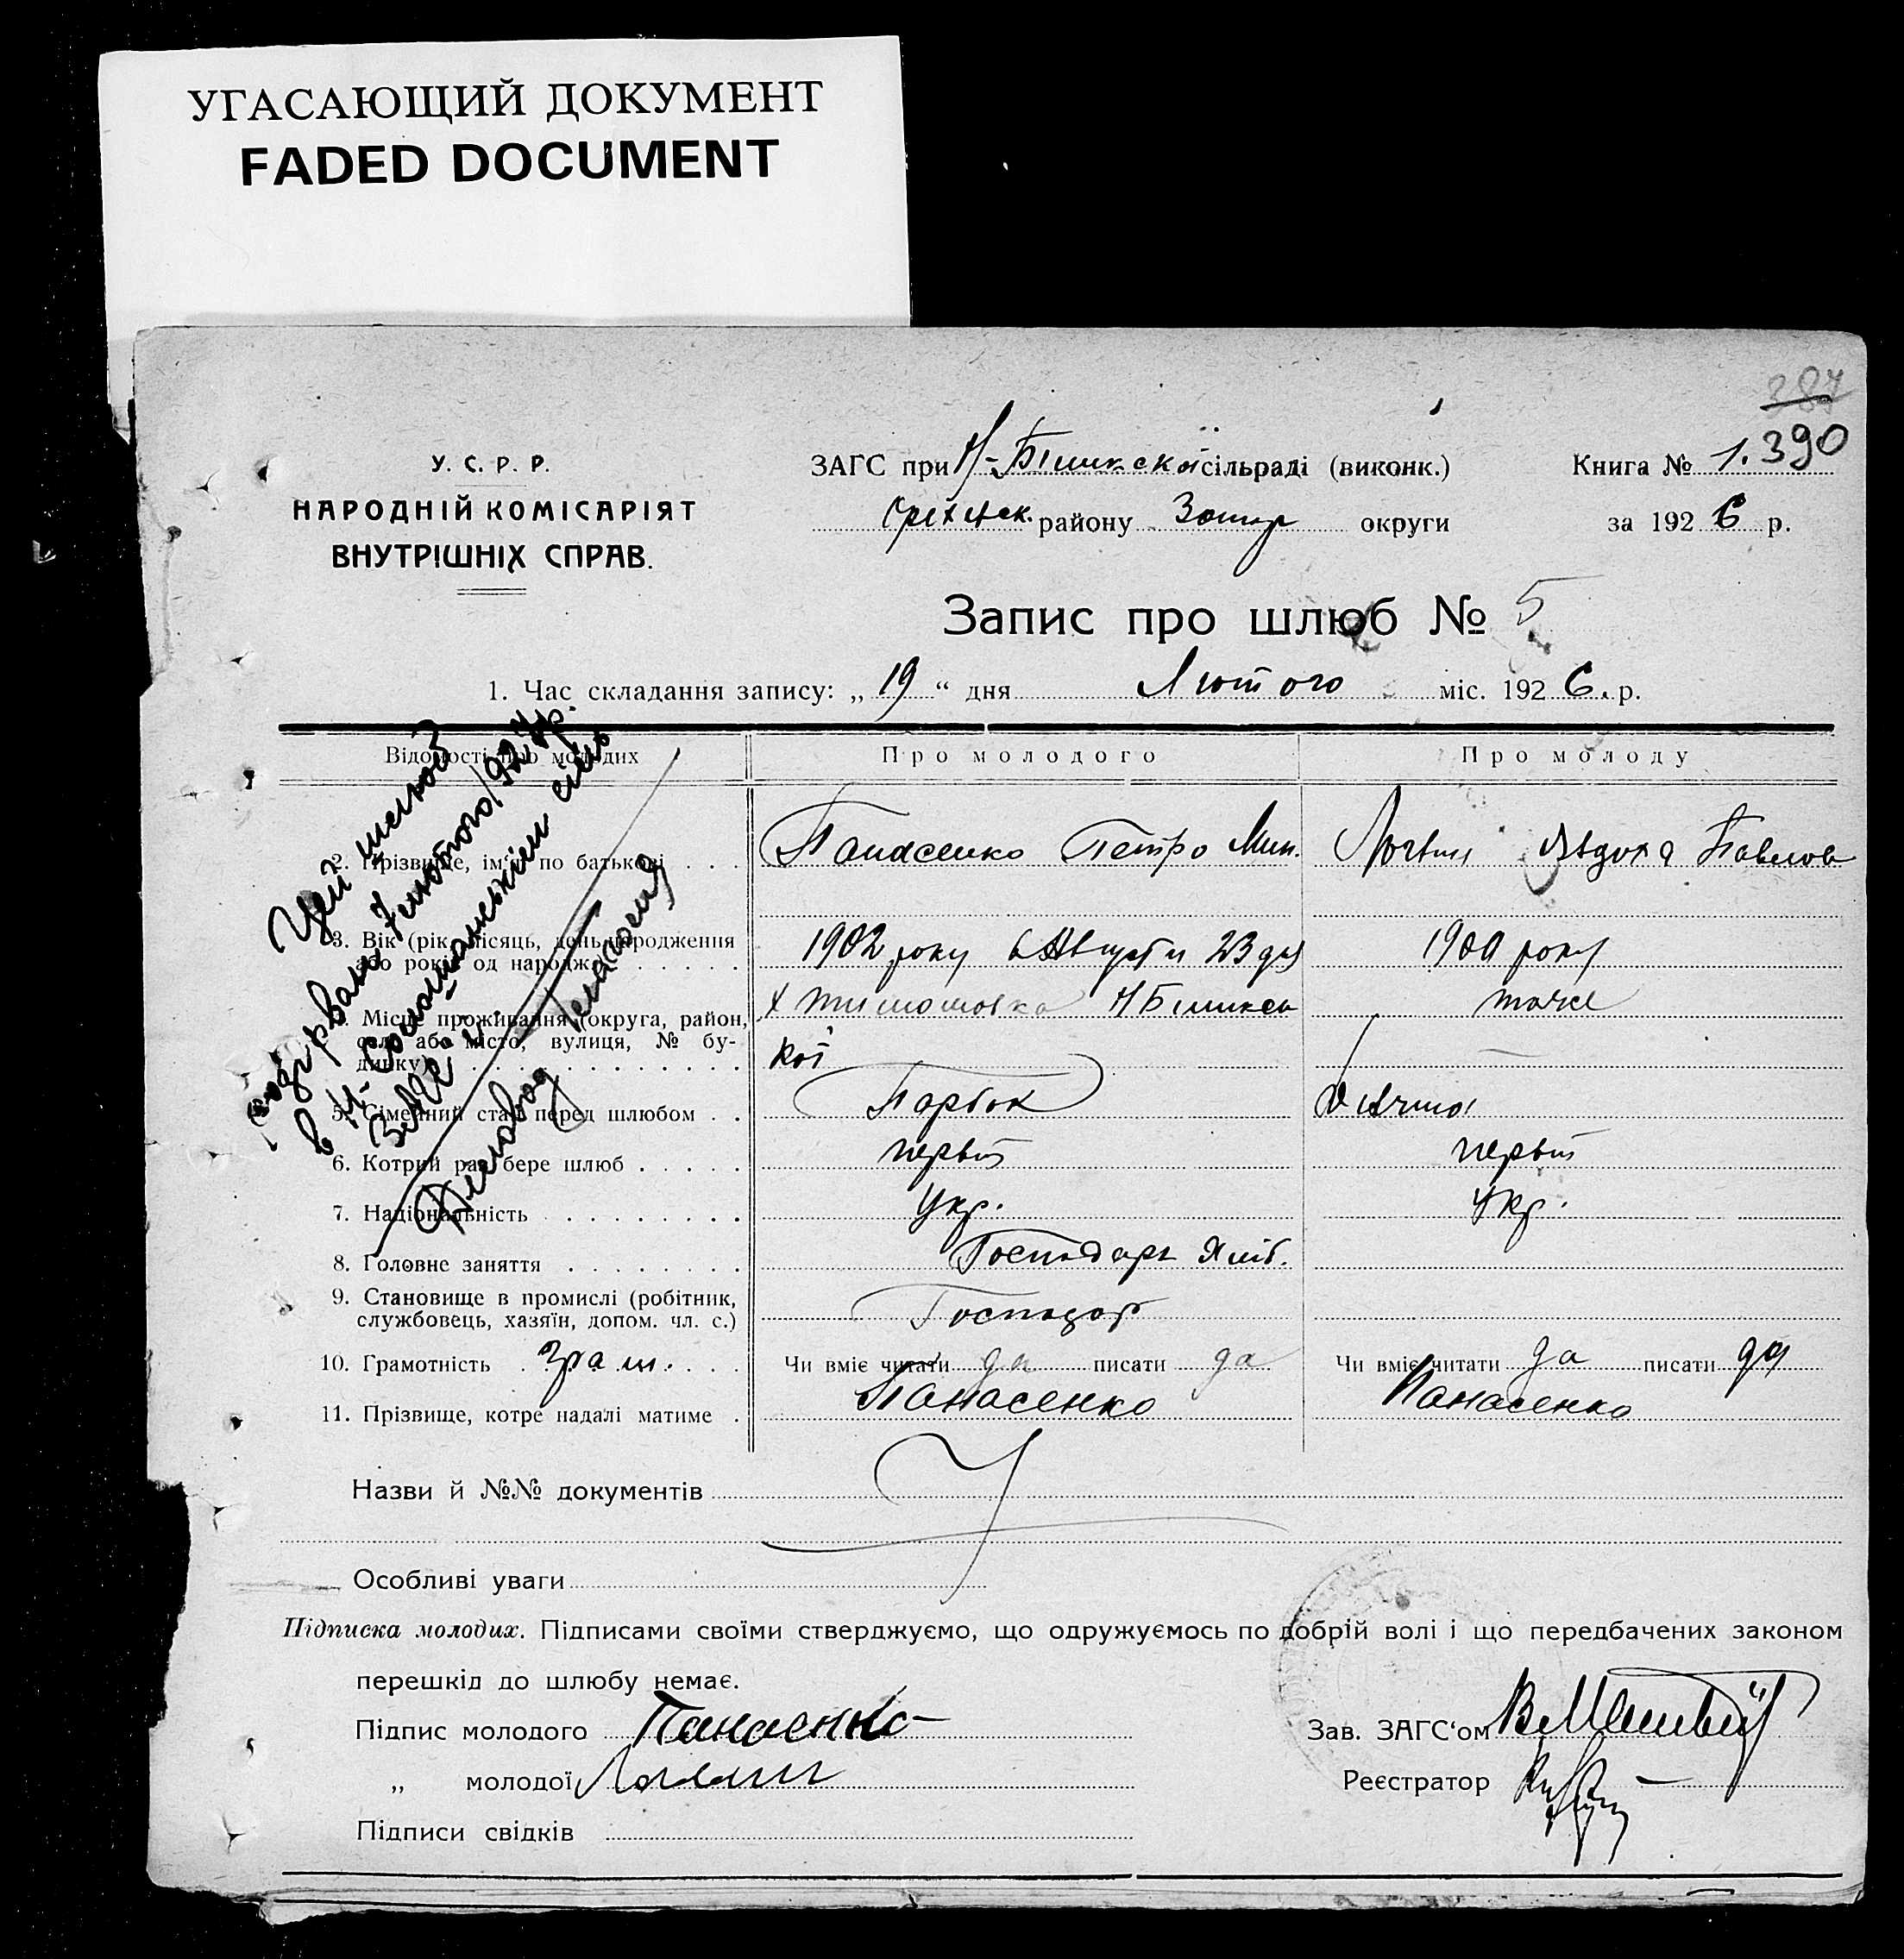 УГАСАЮЩИЙ ДОКУМЕНТ
FADED DOCUMENT
387
У. С. Р. Р.
НАРОДНІЙ КОМІСАРІЯТ
ВНУТРІШНІХ СПРАВ.
ЗАГС при сільраді (виконк.)
району округи
Книга № 1. 390
за 1926 р.
Запис про шлюб № 5
1. Час складання запису: „ 19 “ дня Лютого міс. 1926. р.
Відомості про молодих
Про молодого
Про молоду
2. Прізвище, ім'я, по батькові . . .
Панасенко Петро Мик.
Павлов
3. Вік (рік, місяць, день народження
або років од народж.) . . . . . .
1902 року 6 Августа 23 дня
1900 року
4. Місце проживання (округа, район,
село або місто, вулиця, № бу-
динку)
х Тимошовка
кої
тоже
5. Сімейний стан перед шлюбом . .
Парбок
Дівчина
6. Котрий раз бере шлюб . . . . .
первый
первый
7. Національність . . . . . . . . .
Укр.
Укр.
8. Головне заняття . . . . . . . .
Господарь
9. Становище в промислі (робітник,
службовець, хазяїн, допом. чл. с.)
Господар
10. Грамотність
Чи вміє читати да писати да
Чи вміє читати да писати да
11. Прізвище, котре надалі матиме .
Панасенко
Панасенко
Цей шлюб
розірвано 7 лютого 1927 р.
Діловод
Назви й №№ документів
Особливі уваги
Підписка молодих. Підписами своїми стверджуємо, що одружуємось по добрій волі і що передбачених законом
перешкід до шлюбу немає.
Підпис молодого Панасенко
„ молодої
Підписи свідків
Зав. ЗАГС‘ом
Реєстратор